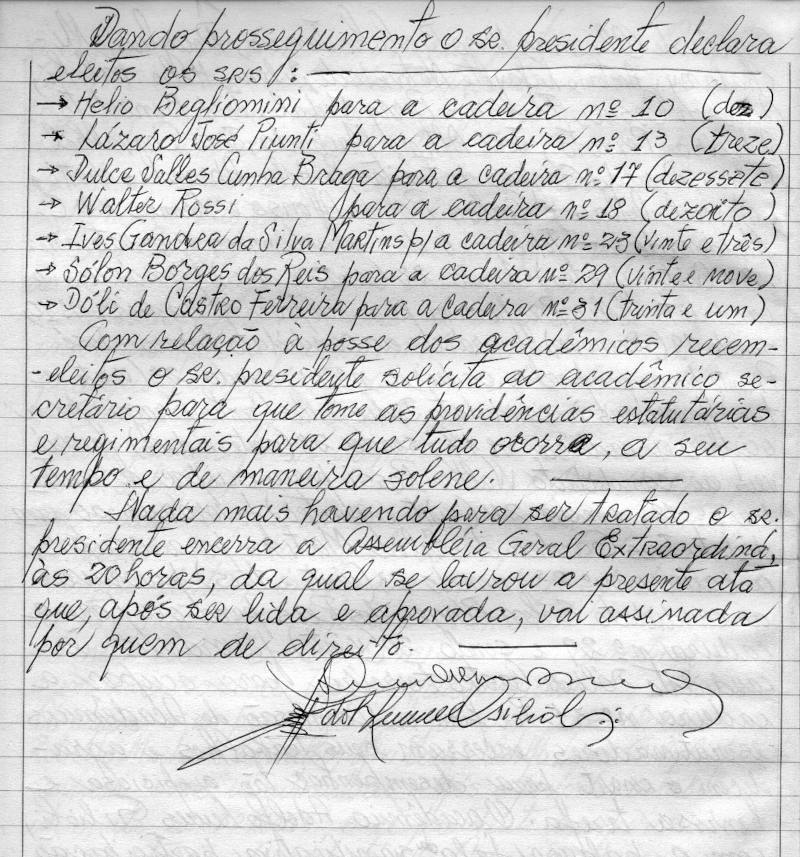 Dando prosseguimento o sr. presidente declara
eleitos os srs :
→ Helio Begliomini para a cadeira nº 10 (dez)
→ Lázaro José Piunti para a cadeira nº 13 (treze)
→ Dulce Salles Cunha Braga para a cadeira nº 17 (dezessete)
→ Walter Rossi para a cadeira nº 18 (dezoito)
→ Ives Gandra da Silva Martins p/ a cadeira nº 23 (vinte e três)
→ Sólon Borges dos Reis para a cadeira nº 29 (vinte e nove)
→ Dóli de Castro Ferreira para a cadeira nº 31 (trinta e um)
Com relação à posse dos acadêmicos recem-
-eleitos o sr. presidente solicita ao acadêmico se-
cretário para que tome as providências estatutárias
e regimentais para que tudo ocorra, a seu
tempo e de maneira solene.
Nada mais havendo para ser tratado o sr.
presidente encerra a Assembléia Geral Extraordiná,
às 20 horas, da qual se lavrou a presente ata
que, após ser lida e aprovada, vai assinada
por quem de direito.